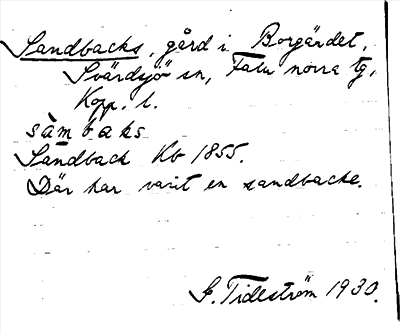 Sandbacks, gård i Borgärdet,
Svärdsjö sn, Falu norra tg,
Kopp. l.
sàmbaks
Sandback Kb 1855.
Där har varit en sandbacke.
G. Tideström 1930.